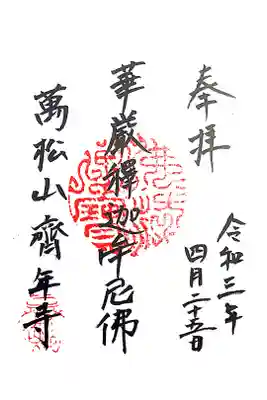 奉拝
令和三年
四月二十五日
華厳釋迦牟尼佛
萬松山齊年寺